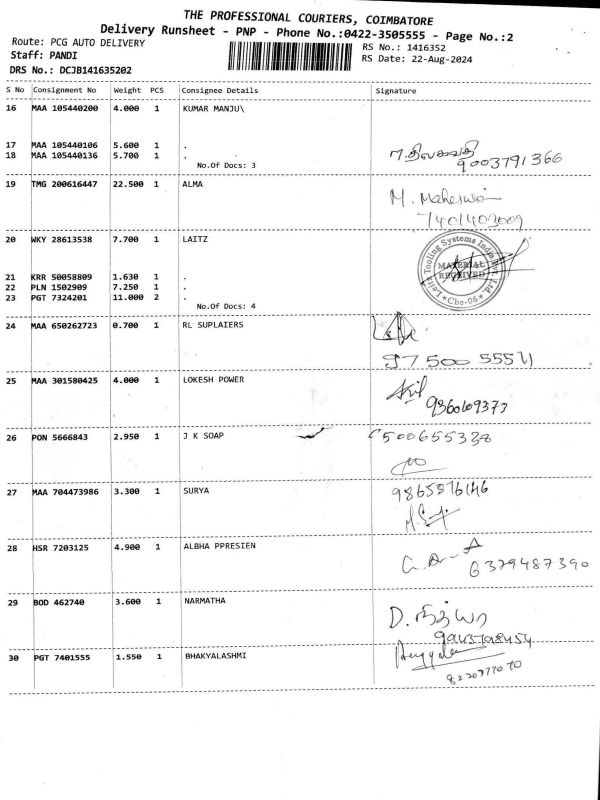 THE PROFESSIONAL COURIERS, COIMBATORE
Delivery Runsheet - PNP - Phone No.:0422-3505555 - Page No.:2
Route: PCG AUTO DELIVERY
RS No.: 1416352
Staff: PANDI
RS Date: 22-Aug-2024
DRS No.: DCJB141635202
S No Consignment No Weight PCS Consignee Details Signature
16 MAA 105440200 4.000 1 KUMAR MANJU\
17 MAA 105440106 5.600 1 .
18 MAA 105440136 5.700 1 .
No.Of Docs: 3
M.திலகவதி
9003791366
19 TMG 200616447 22.500 1 ALMA
M. Maheswari
7401403009
20 WKY 28613538 7.700 1 LAITZ
21 KRR 50058809 1.630 1 .
22 PLN 1502909 7.250 1 .
23 PGT 7324201 11.000 2 .
No.Of Docs: 4
Leitz Tooling Systems India Pvt. Ltd.
MATERIAL RECEIVED
Cbe-06
24 MAA 650262723 0.700 1 RL SUPLAIERS
97500 55571
25 MAA 301580425 4.000 1 LOKESH POWER
9360609373
26 PON 5666843 2.950 1 J K SOAP
27 MAA 704473986 3.300 1 SURYA
28 HSR 7203125 4.900 1 ALBHA PPRESIEN
6379487390
29 BOD 462740 3.600 1 NARMATHA
D. நித்யா
30 PGT 7401555 1.550 1 BHAKYALASHMI